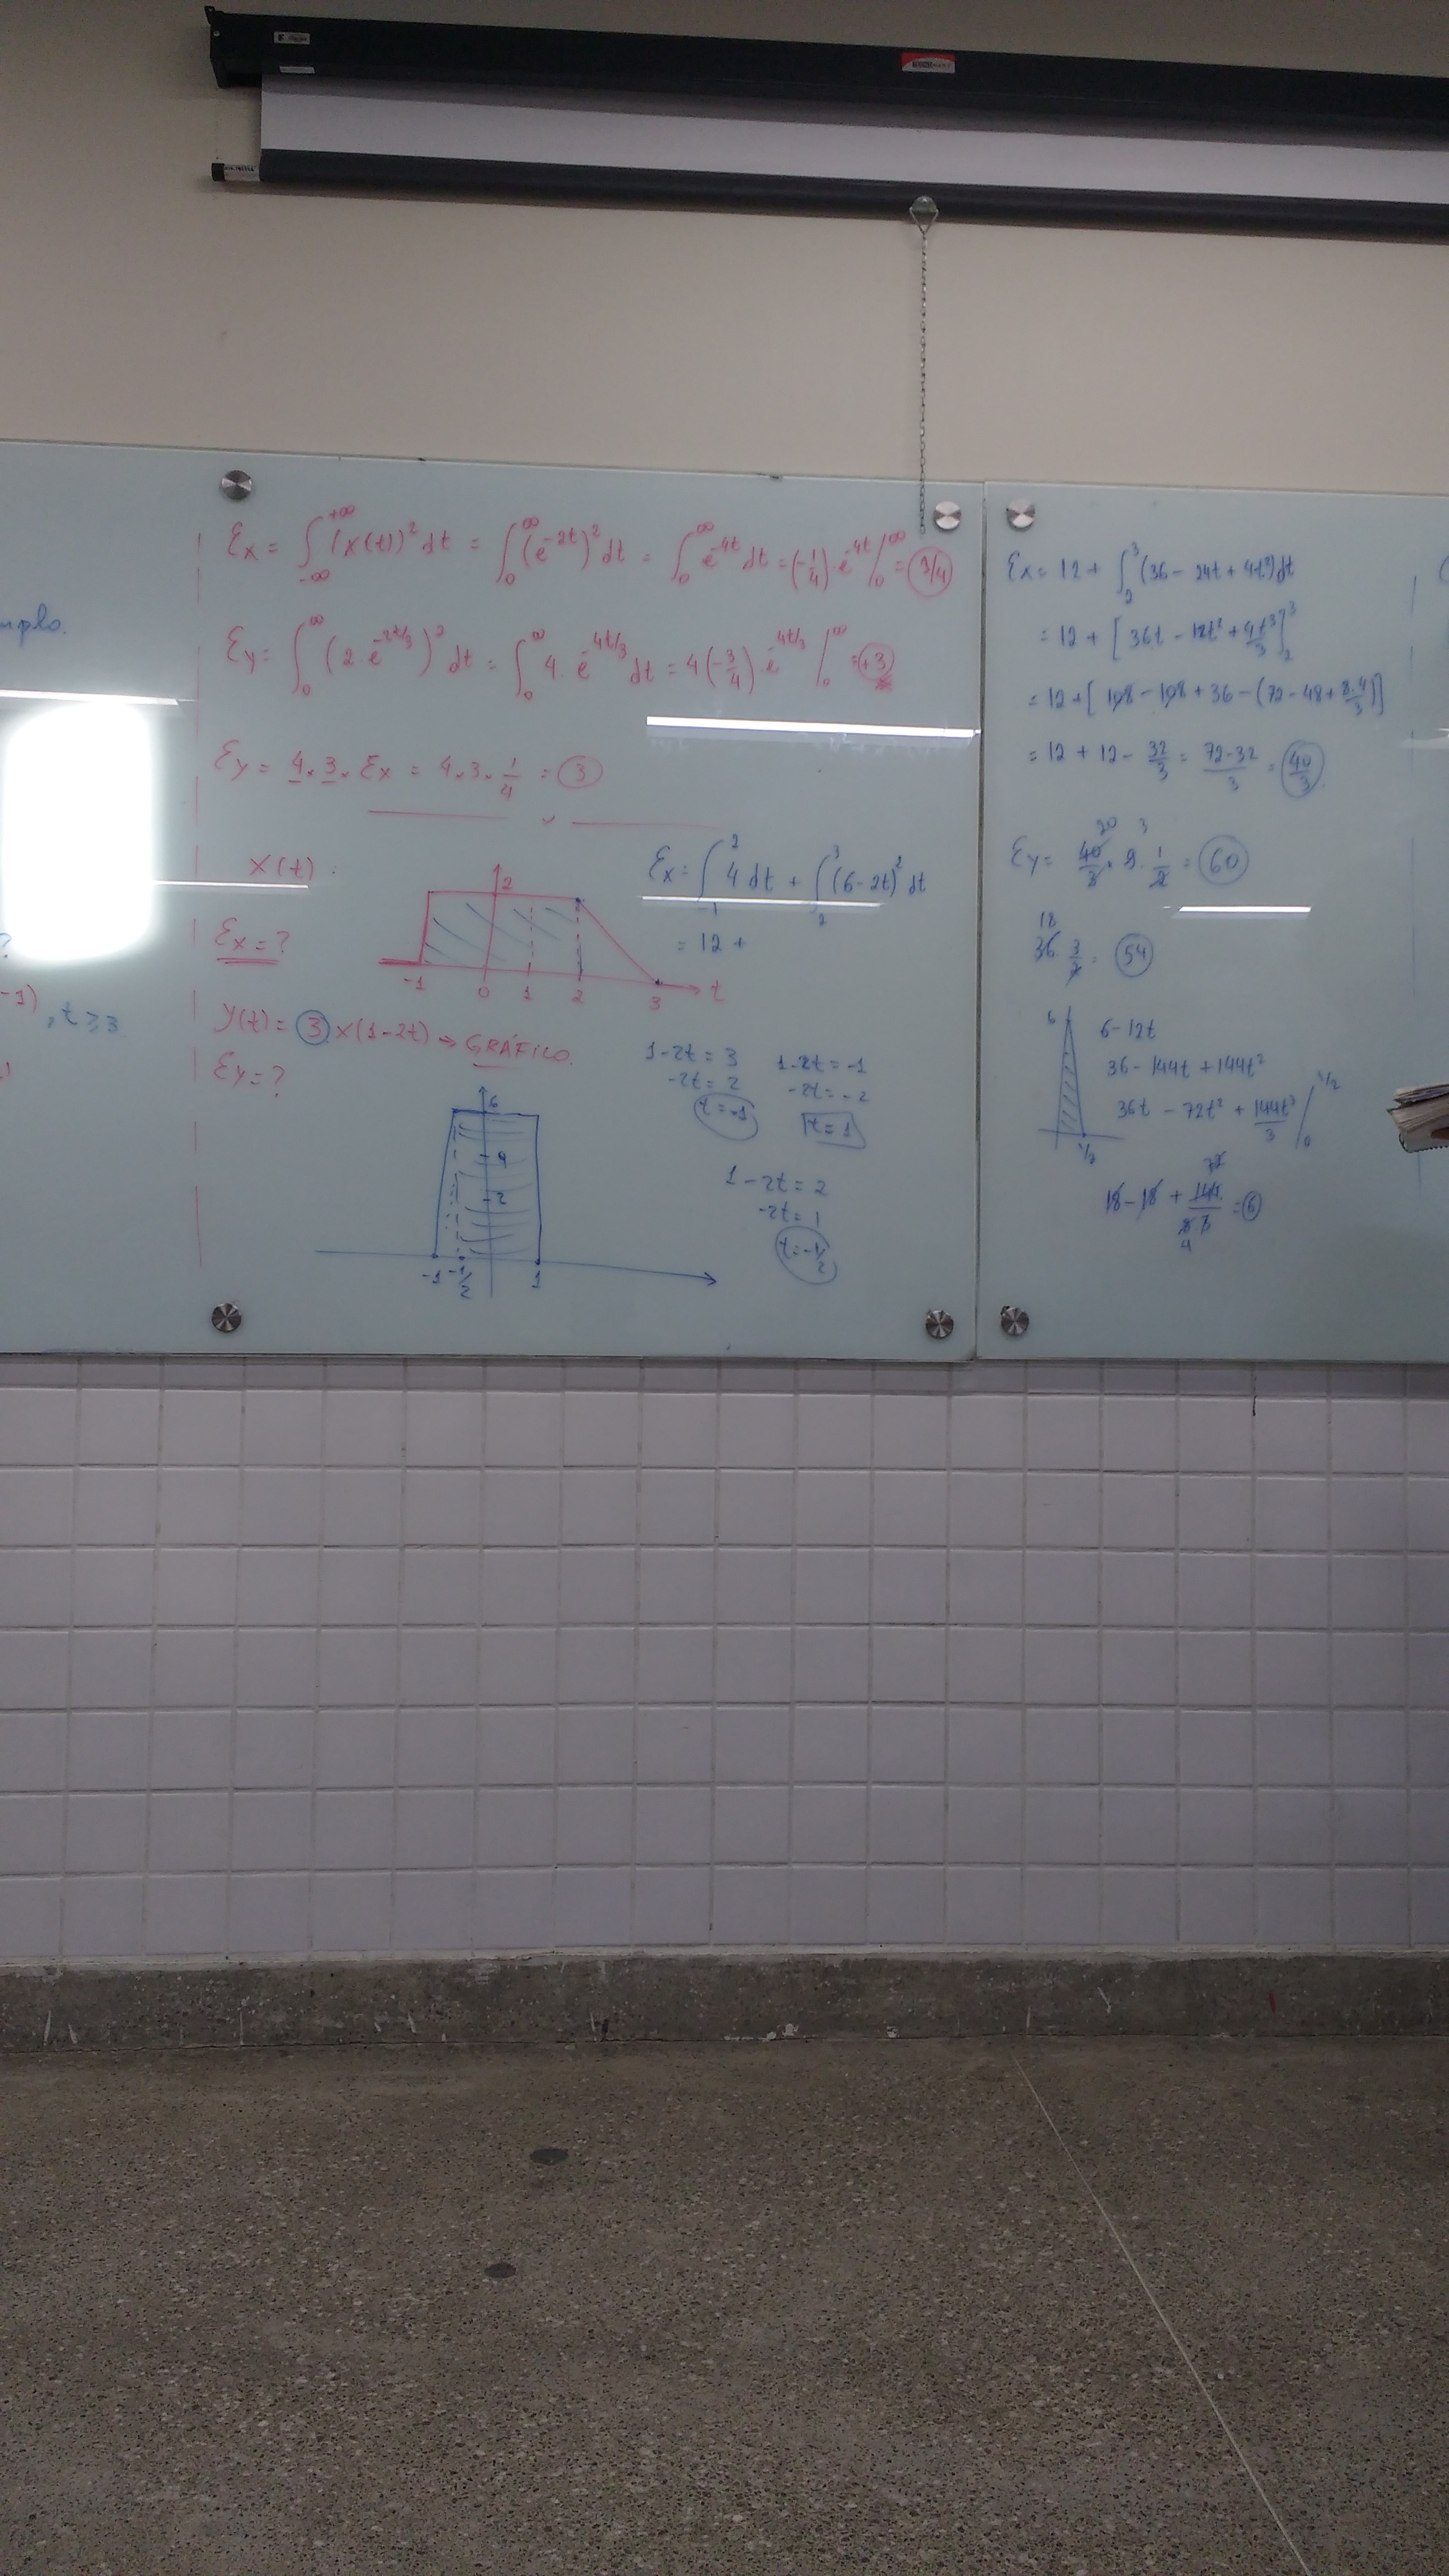 mplo.
?
-1)
, t ≥ 3
Ex = ∫_{-∞}^{+∞} (x(t))² dt = ∫_0^∞ (e^{-2t})² dt = ∫_0^∞ e^{-4t} dt = (-1/4) · e^{-4t} |_0^∞ =
Ey = ∫_0^∞ (2 · e^{-2t/3})² dt = ∫_0^∞ 4 · e^{-4t/3} dt = 4 (-3/4) · e^{-4t/3} |_0^∞ = +3
Ey = 4 × 3 × Ex = 4 × 3 × 1/4 = 3
x(t) :
Ex = ?
2
-1 0 1 2 3 t
Ex = ∫_{-1}^{2} 4 dt + ∫_2^3 (6-2t)² dt
= 12 +
y(t) = 3 x(1-2t) → GRÁFICO
Ey = ?
6
4
2
-1 -1/2 1
1-2t = 3
-2t = 2
t = -1
1-2t = -1
-2t = -2
t = 1
1-2t = 2
-2t = 1
t = -1/2
Ex = 12 + ∫_2^3 (36 - 24t + 4t²) dt
= 12 + [36t - 12t² + 4t³/3]_2^3
= 12 + [108 - 108 + 36 - (72 - 48 + 8.4/3)]
= 12 + 12 - 32/3 = 72-32/3 = 40/3
20 3
Ey = 40/3 · 9 · 1/2 = 60
18
36 · 3/2 = 54
6
1/2
6-12t
36 - 144t + 144t²
36t - 72t² + 144t³/3 |_0^{1/2}
18 - 18 + 144/8.3 = 6
4